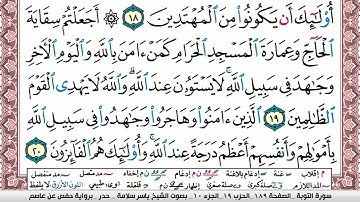 أُو۟لَٰٓئِكَ أَن يَكُونُوا۟ مِنَ ٱلْمُهْتَدِينَ ١٨ ۞ أَجَعَلْتُمْ سِقَايَةَ
ٱلْحَآجِّ وَعِمَارَةَ ٱلْمَسْجِدِ ٱلْحَرَامِ كَمَنْ ءَامَنَ بِٱللَّهِ وَٱلْيَوْمِ ٱلْءَاخِرِ
وَجَٰهَدَ فِى سَبِيلِ ٱللَّهِ ۚ لَا يَسْتَوُۥنَ عِندَ ٱللَّهِ ۗ وَٱللَّهُ لَا يَهْدِى ٱلْقَوْمَ
ٱلظَّٰلِمِينَ ١٩ ٱلَّذِينَ ءَامَنُوا۟ وَهَاجَرُوا۟ وَجَٰهَدُوا۟ فِى سَبِيلِ ٱللَّهِ
بِأَمْوَٰلِهِمْ وَأَنفُسِهِمْ أَعْظَمُ دَرَجَةً عِندَ ٱللَّهِ ۚ وَأُو۟لَٰٓئِكَ هُمُ ٱلْفَآئِزُونَ ٢٠
سورة التوبة . الصفحة ١٨٩ الحزب ١٩ الجزء ١٠. بصوت الشيخ ياسر سلامة . حدر . برواية حفص عن عاصم